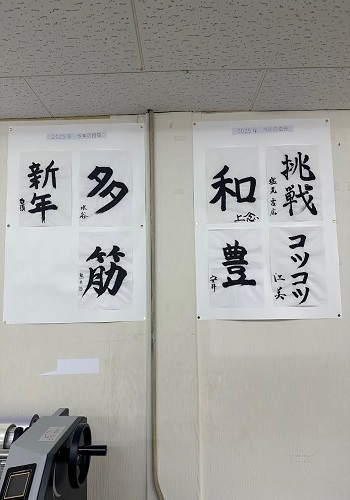 2025年 今年の抱負
多
水谷
新年
筋
2025年 今年の抱負
挑戦
和
上念
コツコツ
江美
豊
安井